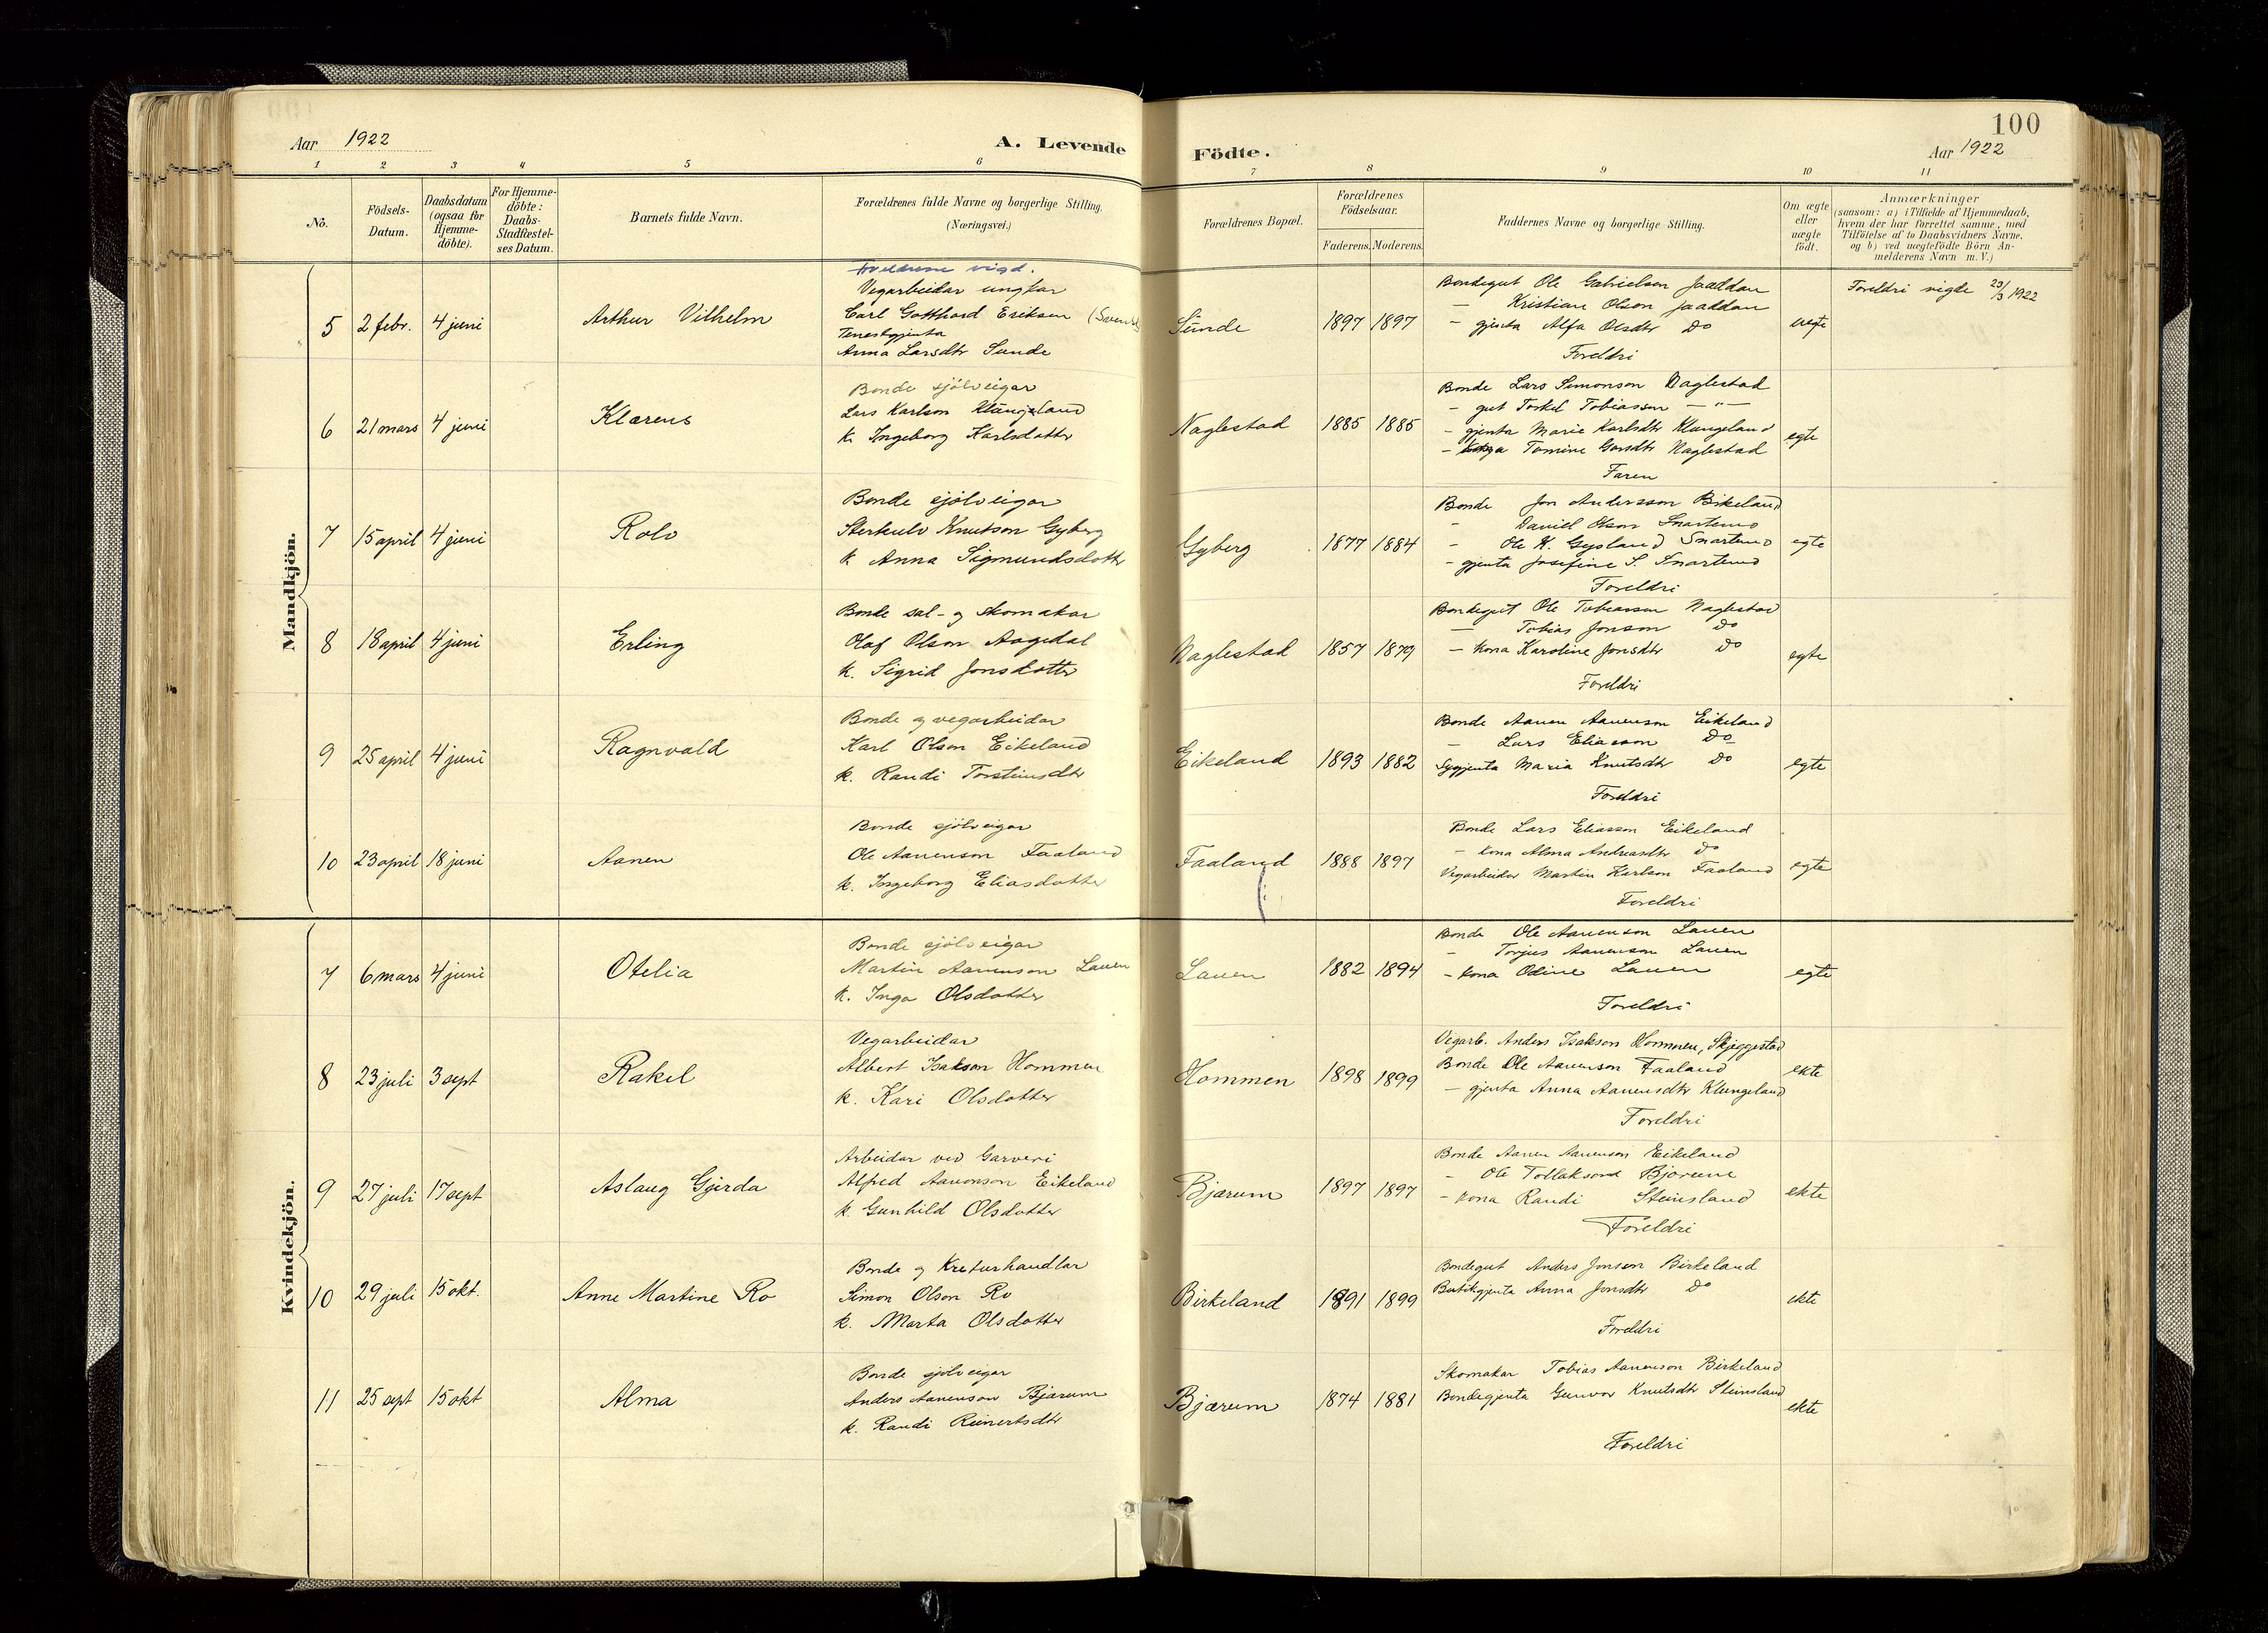 100
Aar 1922
A. Levende
Födte.
Aar 1922
1 2 3 4 5 6 7 8 9 10 11
No.
Födsels-
Datum.
Daabsdatum
(ogsaa for
Hjemme-
döbte).
For Hjemme-
döbte:
Daabs-
Stadfæstel-
ses Datum.
Barnets fulde Navn.
Forældrenes fulde Navne og borgerlige Stilling.
(Næringsvei.)
Forældrenes Bopæl.
Forældrenes
Födselsaar.
Faderens. Moderens.
Faddernes Navne og borgerlige Stilling.
Om ægte
eller
uægte
födt.
Anmærkninger
(saasom: a) i Tilfælde af Hjemmedaab,
hvem der har forrettet samme, med
Tilföielse af to Daabsvidners Navne,
og b) ved uægtefödte Börn An-
melderens Navn m. V.)
Mandkjön.
5 2 febr. 4 juni Arthur Vilhelm
Foreldrene vigd.
Vegarbeidar ungkar
Carl Gotthard Erikson (Svensk
Tenestgjenta
Anna Larsdtr Sunde
Sunde 1897 1897
Bondegut Ole Gabrielson Jaaddan
— Kristian Olson Jaaddan
- gjenta Alfa Olsdtr Do
Foreldri
uegte
Foreldri vigde 23/3 1922
6 21 mars 4 juni Klarens
Bonde sjölveigar
Lars Karlson Klungeland
k. Ingeborg Karlsdotter
Naglestad 1885 1885
Bonde Lars Simonson Naglestad
- gut Torkel Tobiasson — " —
- gjenta Marie Karlsdtr Klungeland
- Tomine Naglestad
Faren
egte
7 15 april 4 juni Rolv
Bonde sjölveigar
Sterkulv Knutson Gyberg
k. Anna Sigmundsdotter
Gyberg 1877 1884
Bonde Jon Andersson Birkeland
- Daniel Olson Snartemo
- Ole K. Gysland Snartemo
- gjenta Josefine S. Snartemo
Foreldri
egte
8 18 april 4 juni Erling
Bonde sal- og skomakar
Olaf Olson Aagedal
k. Sigrid Jonsdotter
Naglestad 1857 1879
Bondegut Ole Tobiasson Naglestad
— Tobias Jonson Do
- kona Karoline Jonsdtr Do
Foreldri
egte
9 25 april 4 juni Ragnvald
Bonde og vegarbeidar
Karl Olson Eikeland
k. Randi Torsteinsdtr
Eikeland 1893 1882
Bonde Aanen Aanenson Eikeland
- Lars Eliasson Do
Sygjenta Maria Knutsdtr Do
Foreldri
egte
10 23 april 18 juni Aanen
Bonde sjölveigar
Ole Aanenson Faaland
k. Ingeborg Eliasdotter
Faaland 1888 1897
Bonde Lars Eliasson Eikeland
- kona Alma Andreasdtr Do
Vegarbeidar Martin Karlson Faaland
Foreldri
egte
Kvindekjön.
7 6 mars 4 juni Otelia
Bonde sjölveigar
Martin Aanenson Lauen
k. Inga Olsdotter
Lauen 1882 1894
Bonde Ole Aanenson Lauen
- Torjus Aanenson Lauen
- kona Odine Lauen
Foreldri
egte
8 23 juli 3 sept Rakel
Vegarbeidar
Albert Isakson Hommen
k. Kari Olsdotter
Hommen 1898 1899
Vegarb. Anders Isakson Hommen, Skjeggestad
Bonde Ole Aanenson Faaland
- gjenta Anna Aanensdtr Klungeland
Foreldri
ekte
9 27 juli 17 sept Aslaug Gjerda
Arbeidar ved Garveri
Alfred Aanonson Eikeland
k. Gunhild Olsdotter
Bjærum 1897 1897
Bonde Aanen Aanenson Eikeland
- Ole Tollakson Bjærum
- kona Randi Steinsland
Foreldri
ekte
10 29 juli 15 okt. Anne Martine Ro
Bonde og Kreturhandlar
Simon Olson Ro
k. Marta Olsdotter
Birkeland 1891 1899
Bondegut Anders Jonson Birkeland
Butikgjenta Anna Jonsdtr Do
Foreldri
ekte
11 25 sept 15 okt Alma
Bonde sjölveigar
Anders Aanenson Bjærum
k. Randi Reinertsdtr
Bjærum 1874 1881
Skomakar Tobias Aanenson Birkeland
Bondegjenta Gunvor Knutsdtr Steinsland
Foreldri
ekte